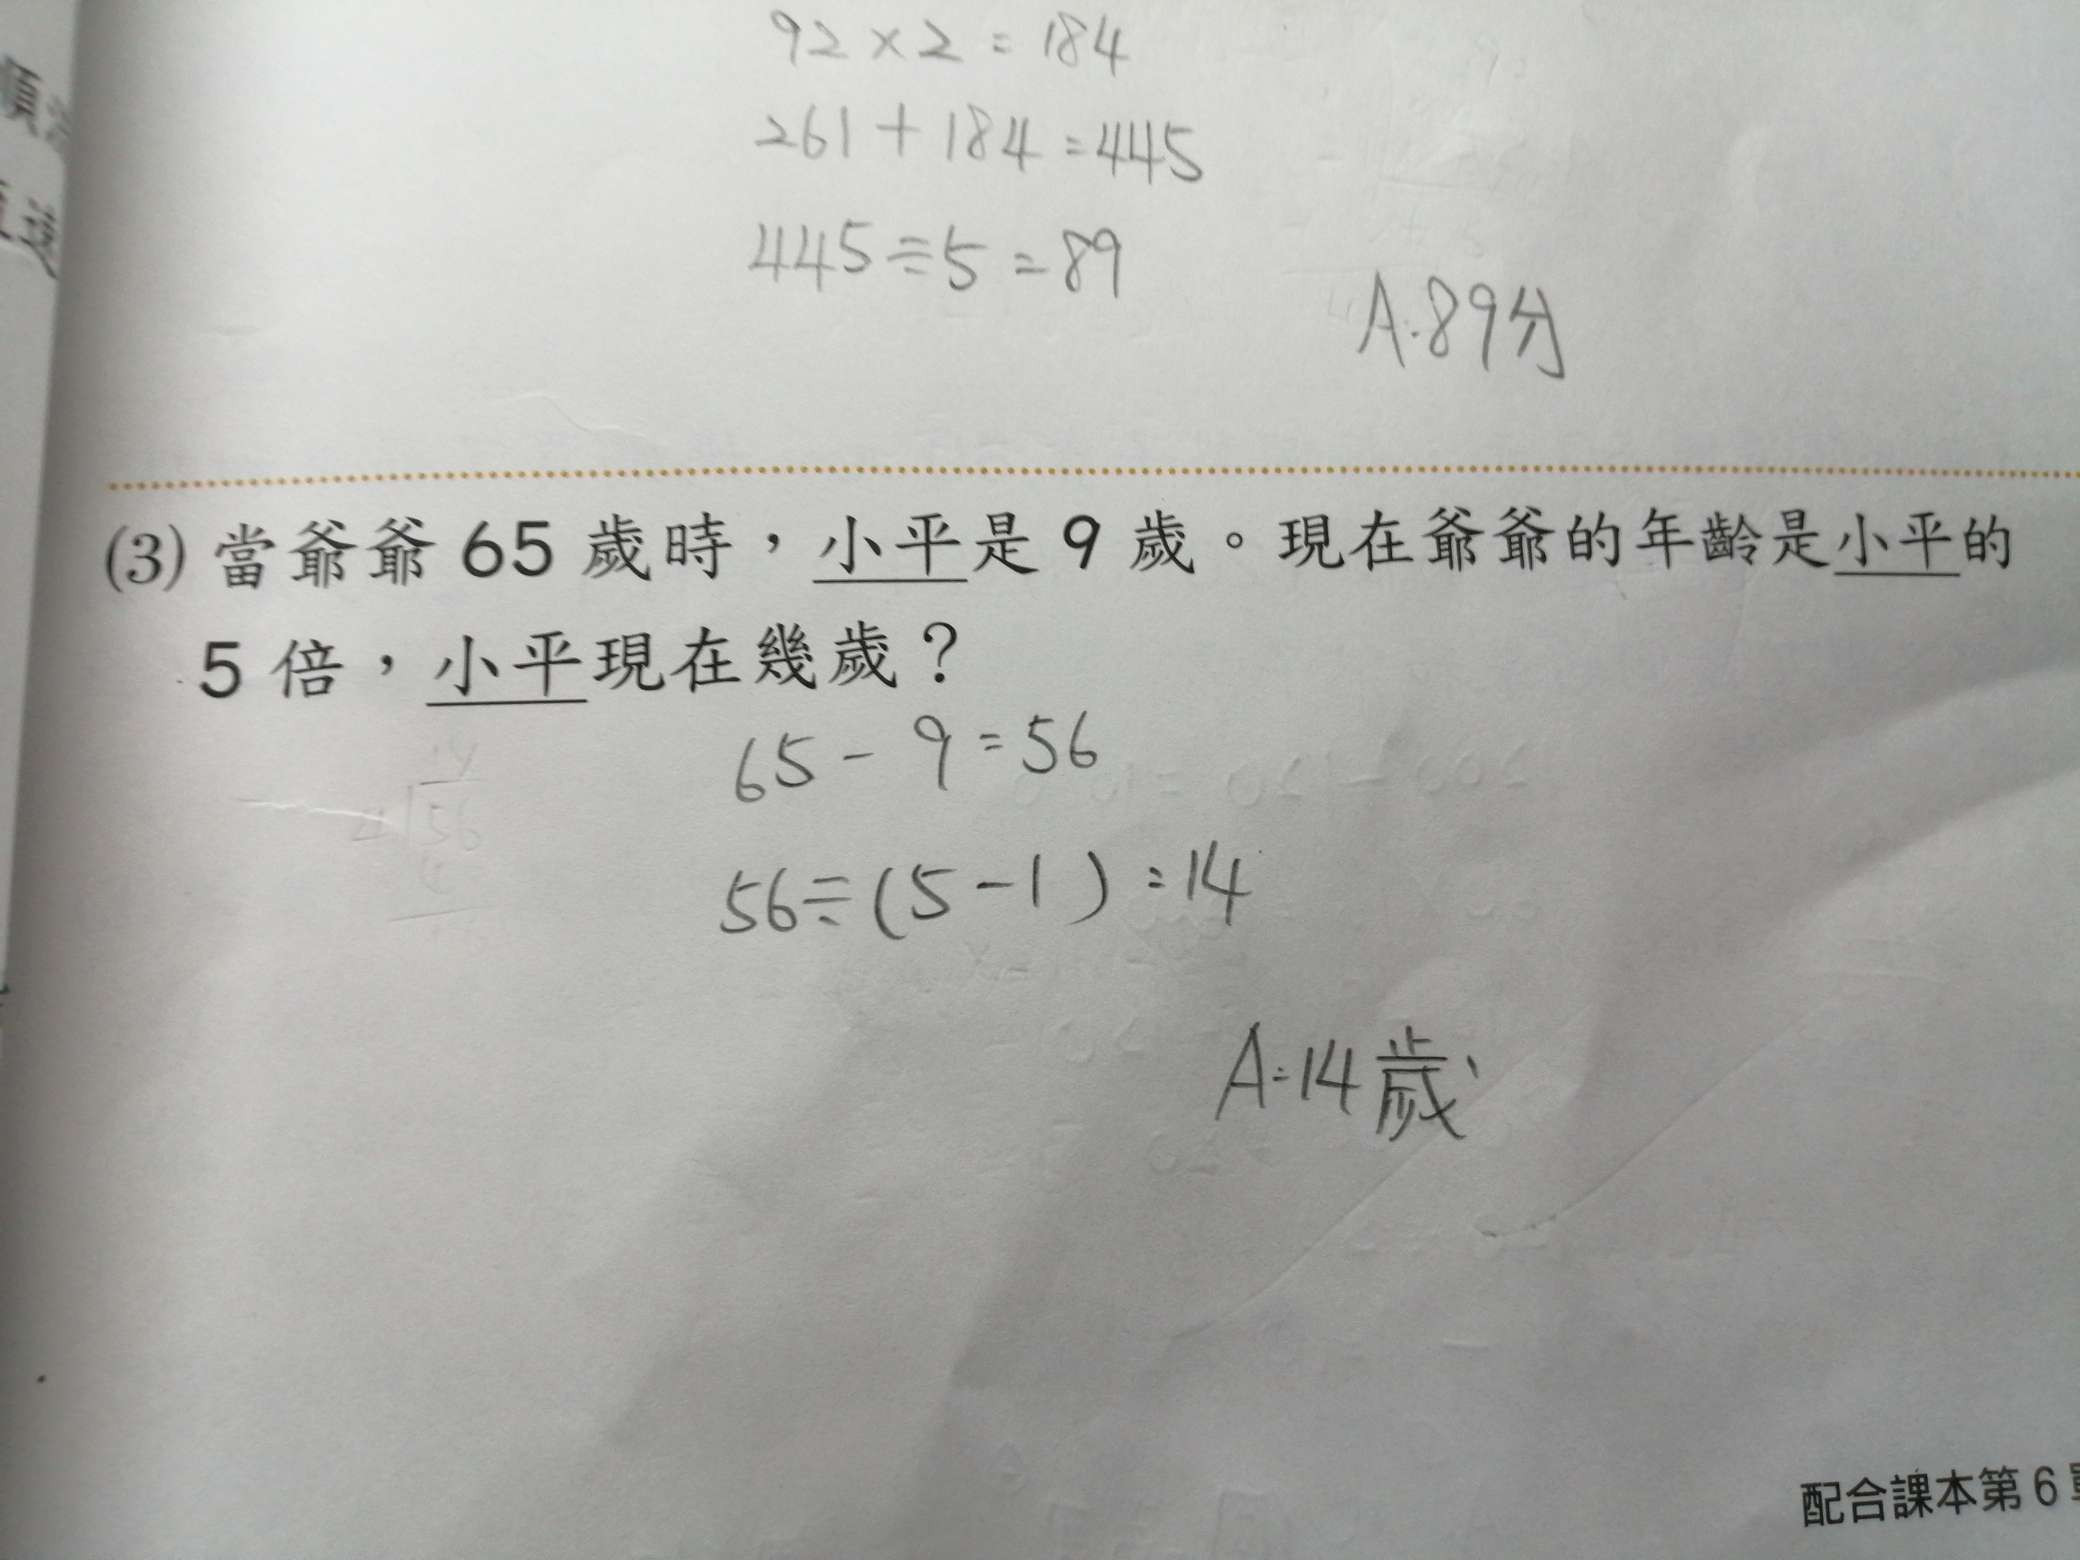 92×2=184
261+184=445
445÷5=89
A:89分
(3) 當爺爺 65 歲時，小平是 9 歲。現在爺爺的年齡是小平的
5 倍，小平現在幾歲？
65-9=56
56÷(5-1)=14
A:14歲
配合課本第 6